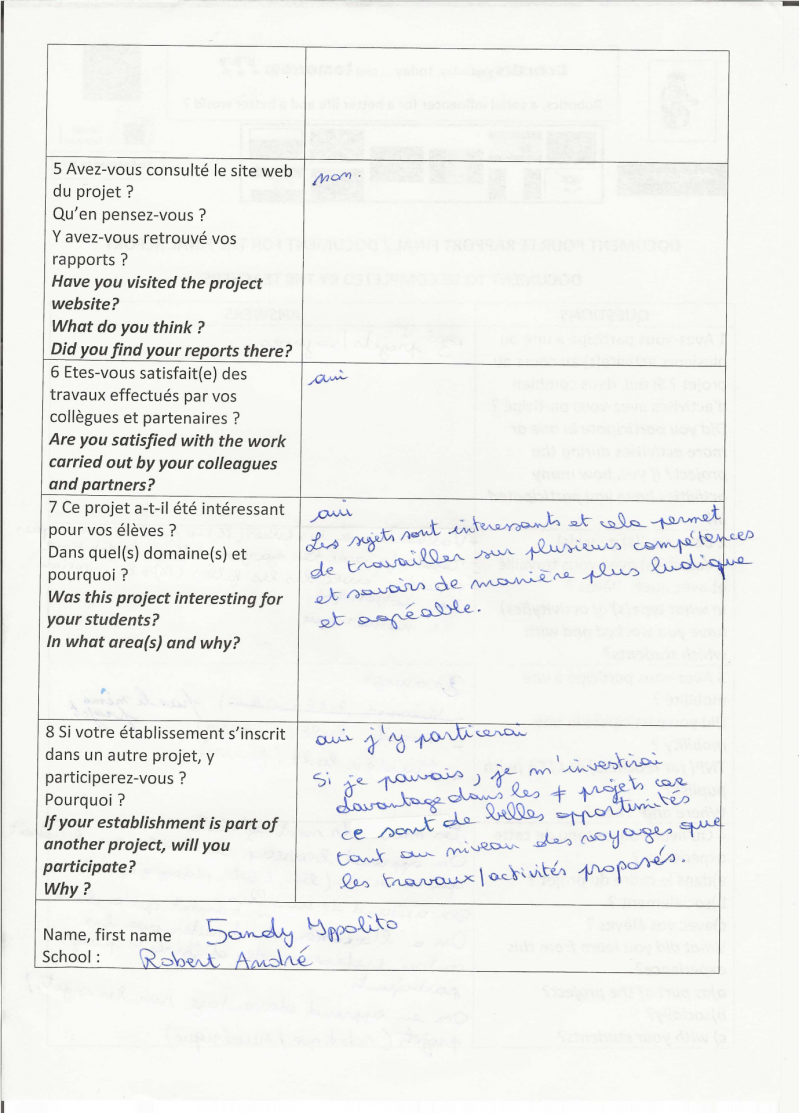 5 Avez-vous consulté le site web
du projet ?
Qu'en pensez-vous ?
Y avez-vous retrouvé vos
rapports ?
Have you visited the project
website?
What do you think ?
Did you find your reports there?
non.
6 Etes-vous satisfait(e) des
travaux effectués par vos
collègues et partenaires ?
Are you satisfied with the work
carried out by your colleagues
and partners?
oui
7 Ce projet a-t-il été intéressant
pour vos élèves ?
Dans quel(s) domaine(s) et
pourquoi ?
Was this project interesting for
your students?
In what area(s) and why?
oui
Les sujets sont interessants et cela permet
de travailler sur plusieurs compétences
et savoirs de manière plus ludique
et agréable.
8 Si votre établissement s'inscrit
dans un autre projet, y
participerez-vous ?
Pourquoi ?
If your establishment is part of
another project, will you
participate?
Why ?
oui j'y particerai
Si je pouvais, je m'investirai
davantage dans les ≠ projets car
ce sont de belles opportunités
tant au niveau des voyages que
les travaux/activités proposés.
Name, first name Sandy Ippolito
School : Robert André